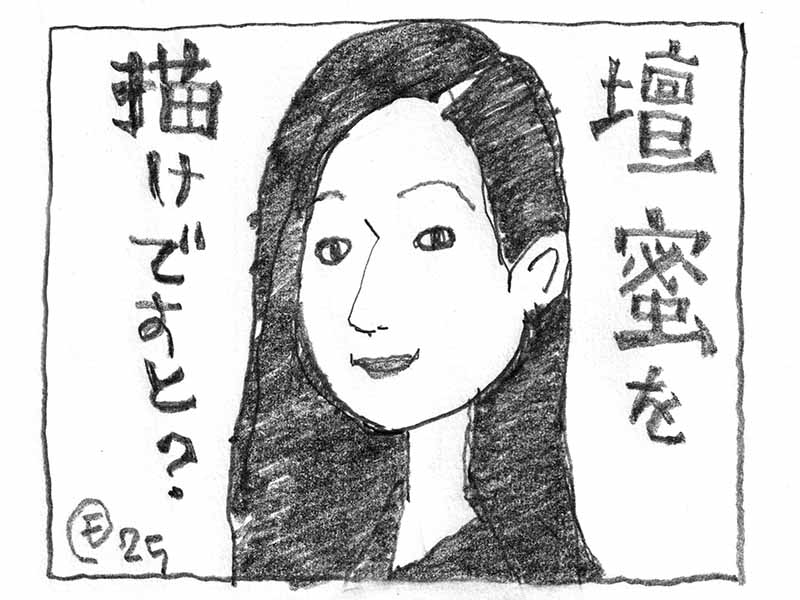 壇蜜を
描けですと？
モ 25